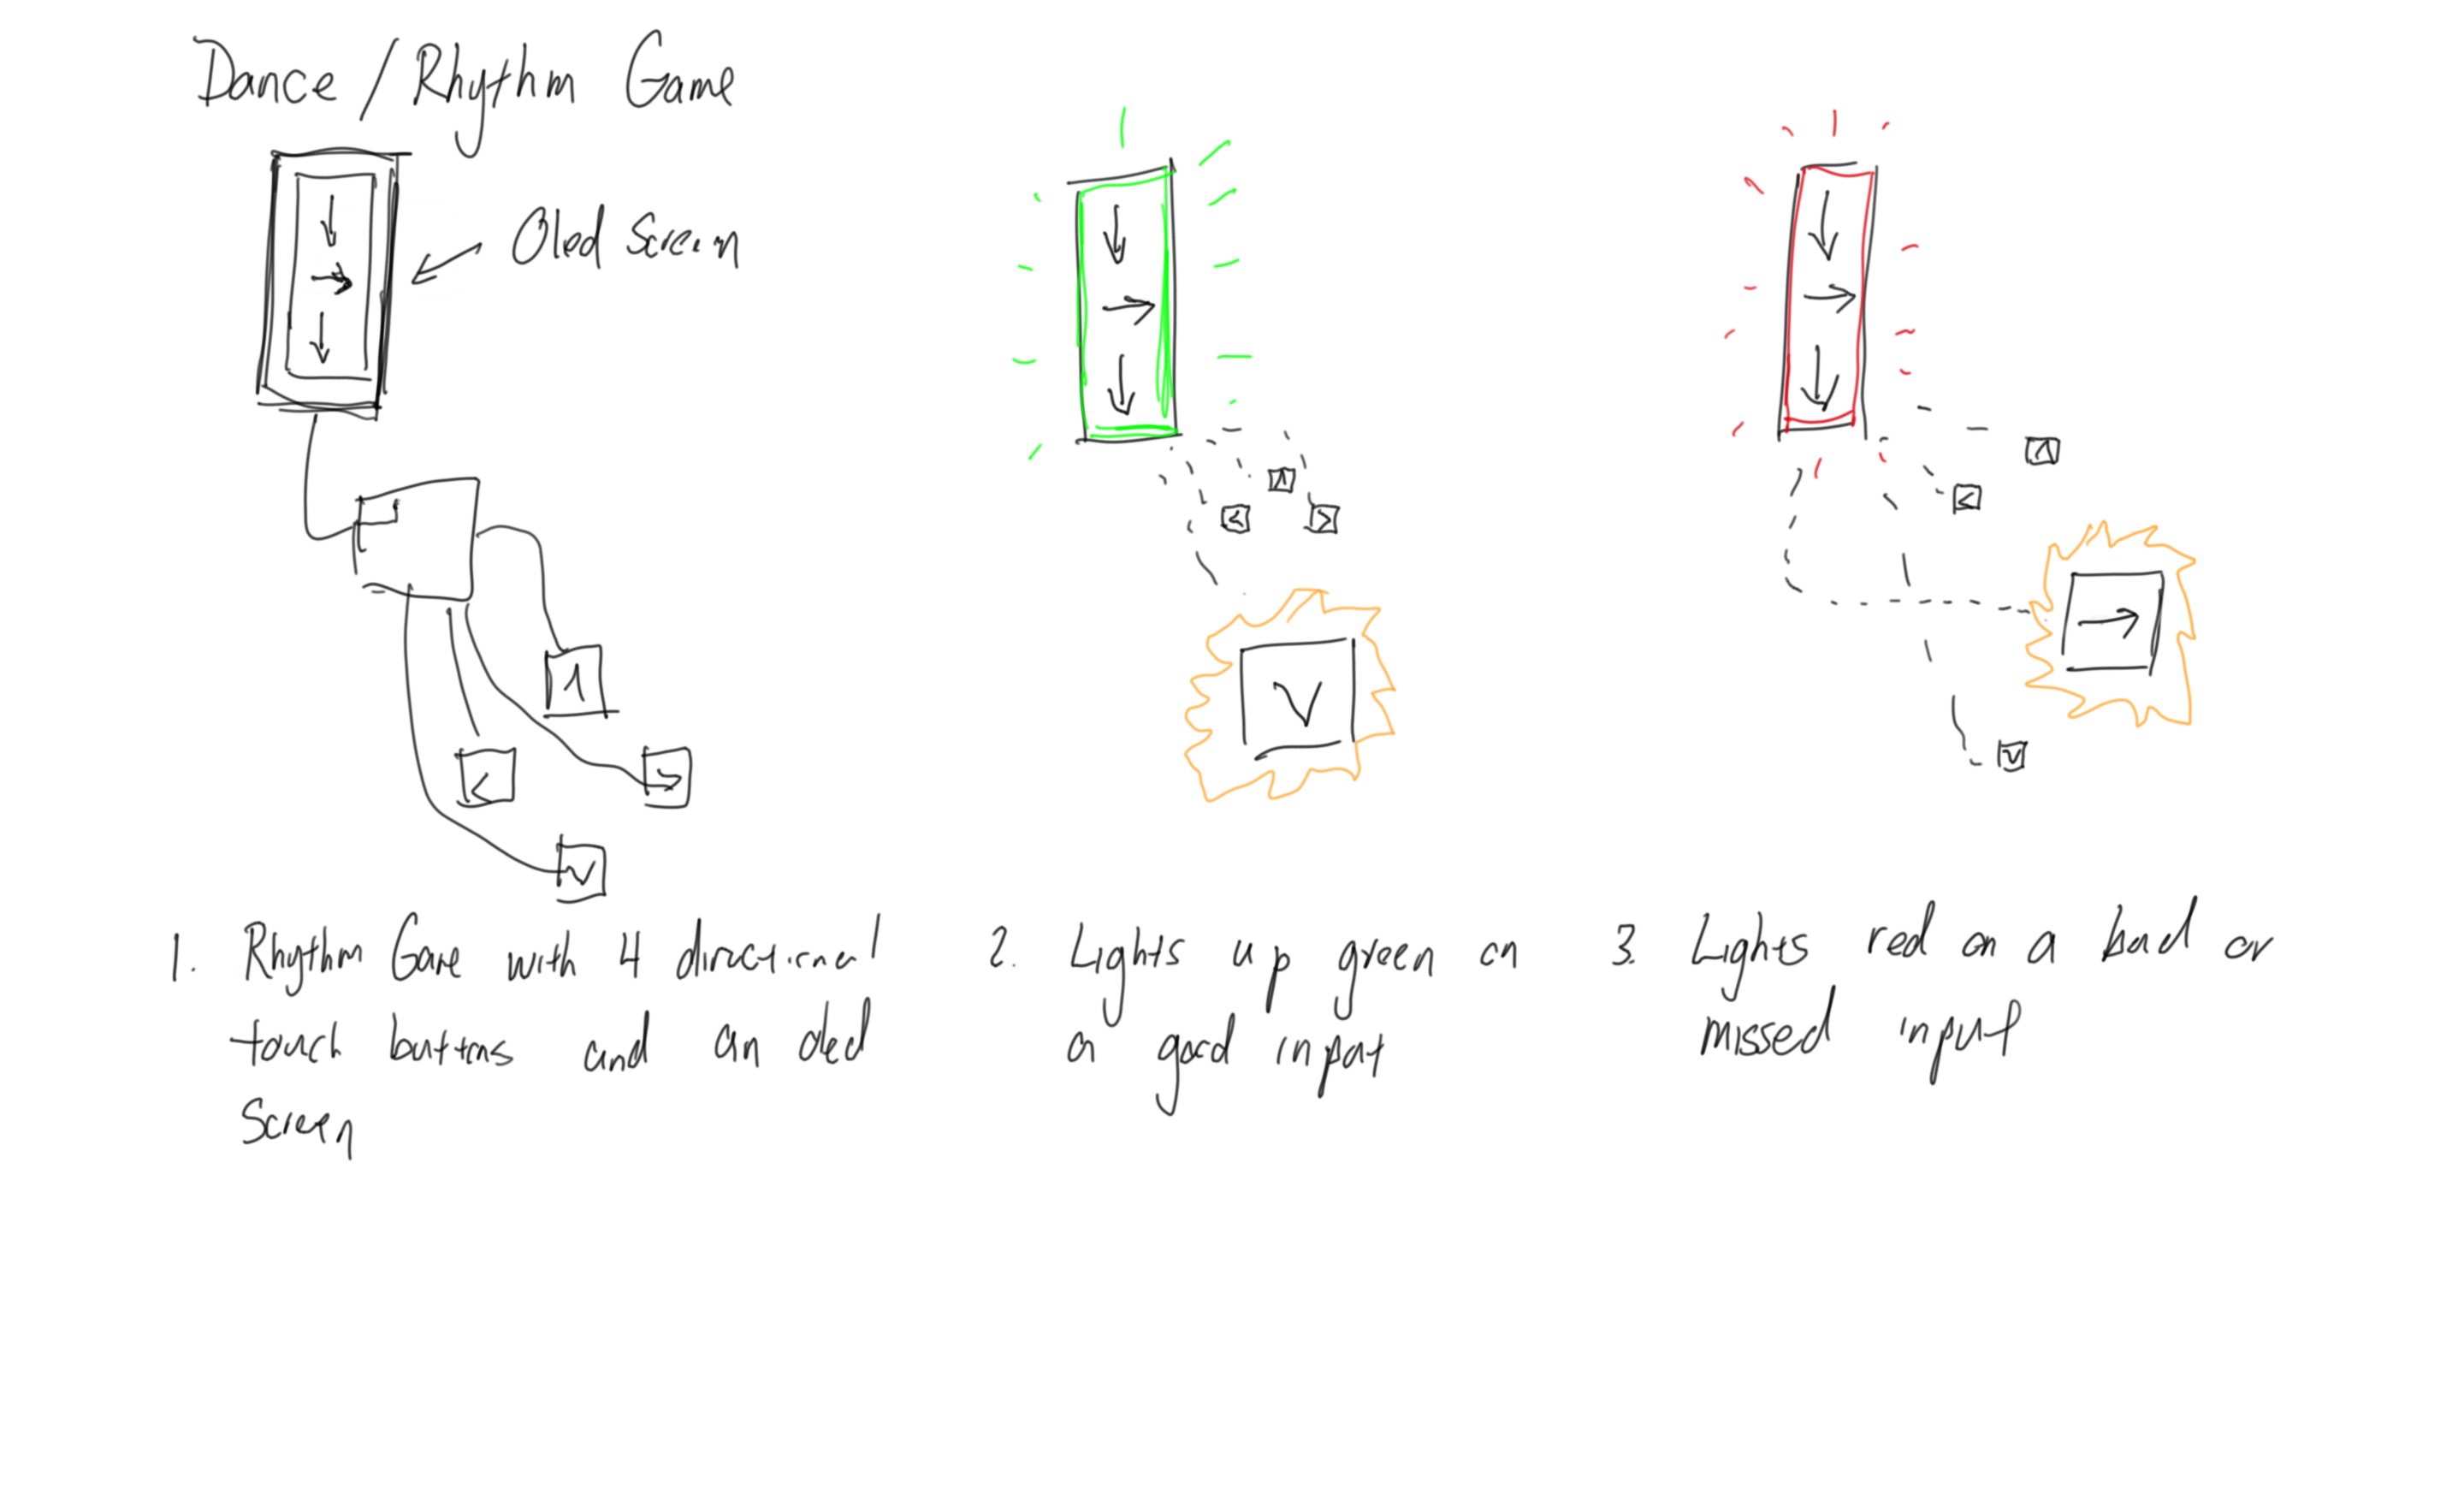 Dance/Rhythm Game
Oled Screen
1. Rhythm Game with 4 directional
touch buttons and an oled
Screen
2. Lights up green on
on good input
3. Lights red on a bad or
missed input